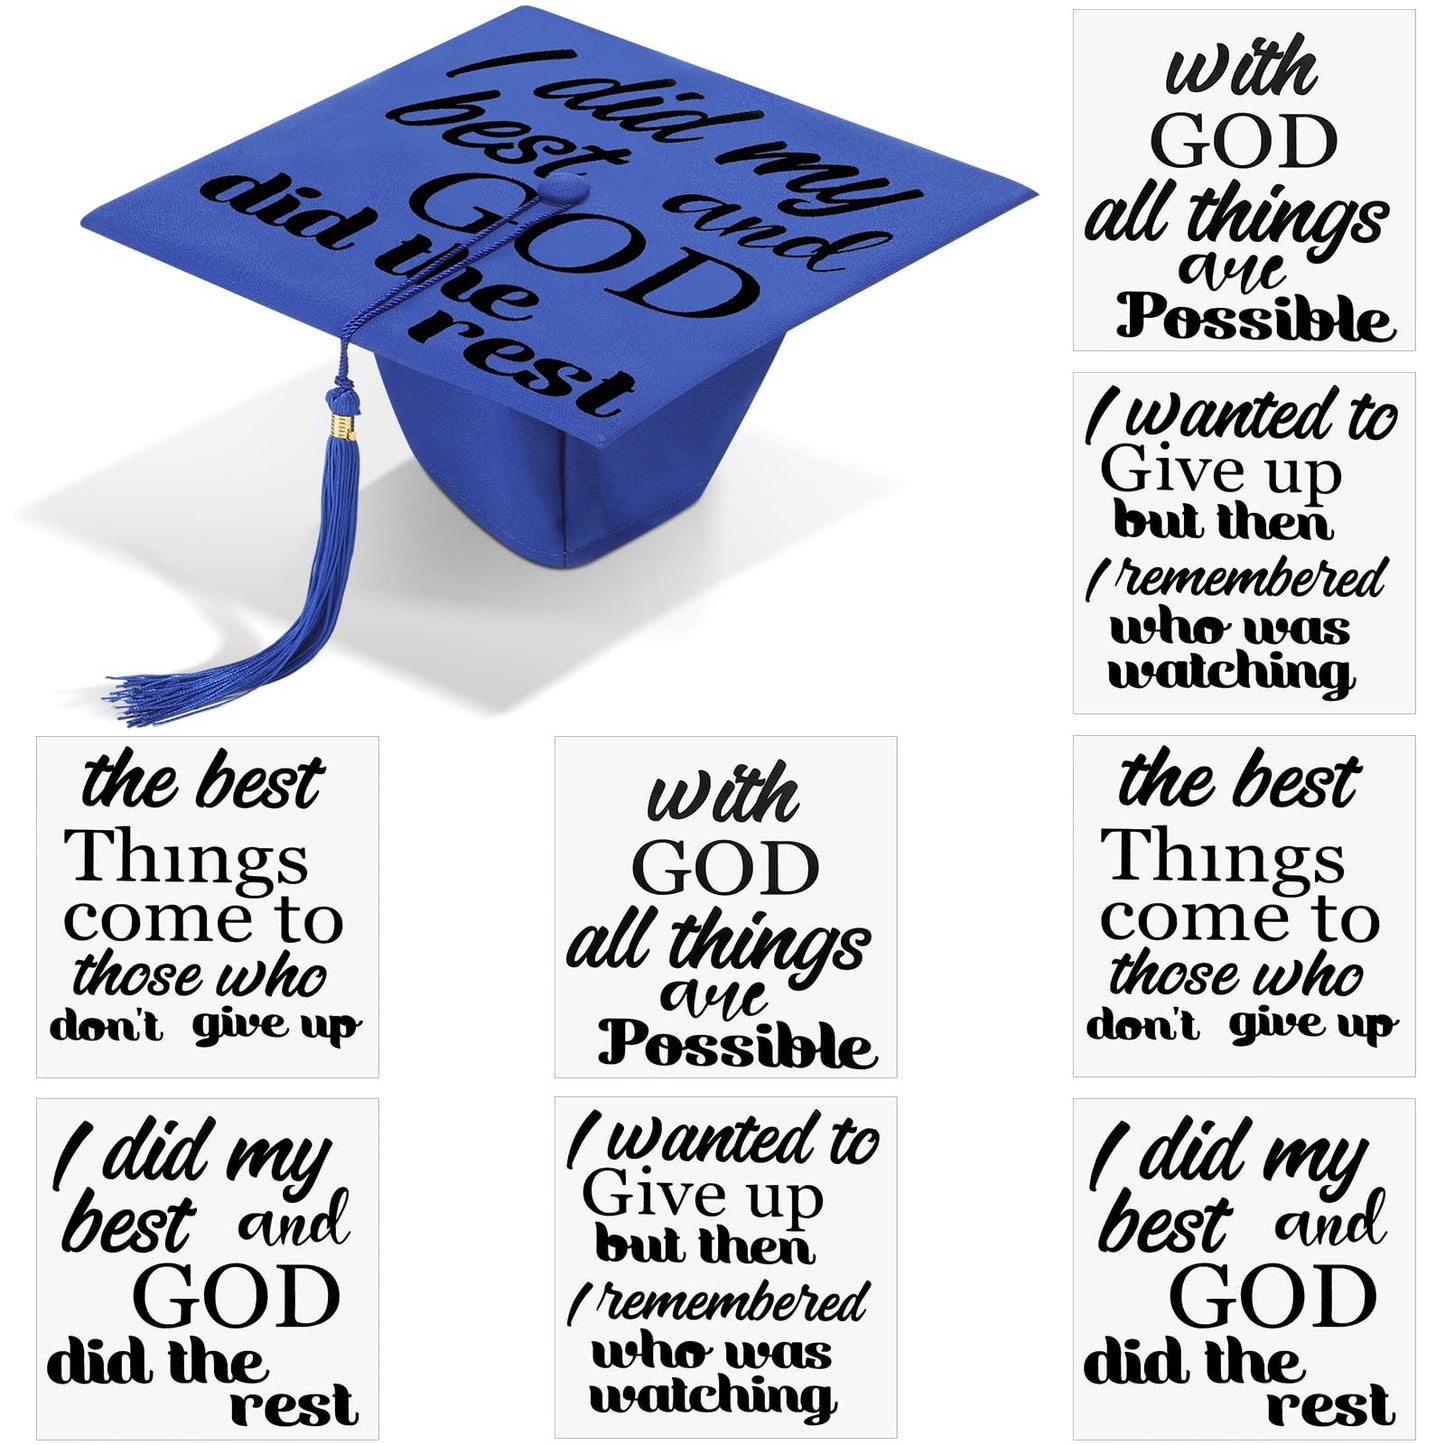 I did my
best and
GOD
did the
rest
with
GOD
all things
are
Possible
I wanted to
Give up
but then
I remembered
who was
watching
the best
Things
come to
those who
don't give up
with
GOD
all things
are
Possible
the best
Things
come to
those who
don't give up
I did my
best and
GOD
did the
rest
I wanted to
Give up
but then
I remembered
who was
watching
I did my
best and
GOD
did the
rest